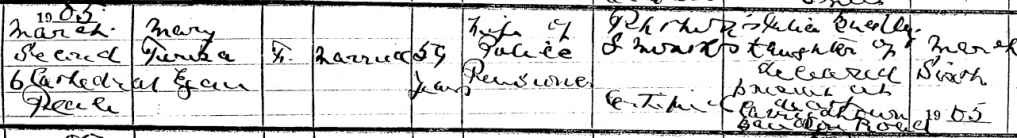 1905
March
Second
6 Cathedral
Place
Mary
Teresa
Egan
F.
Married
59
years
Wife of
Police
Pensioner
Phthisis
5 months
Certified
Julia
Daughter of
deceased
present at
death
Bandon Road
March
Sixth
1905